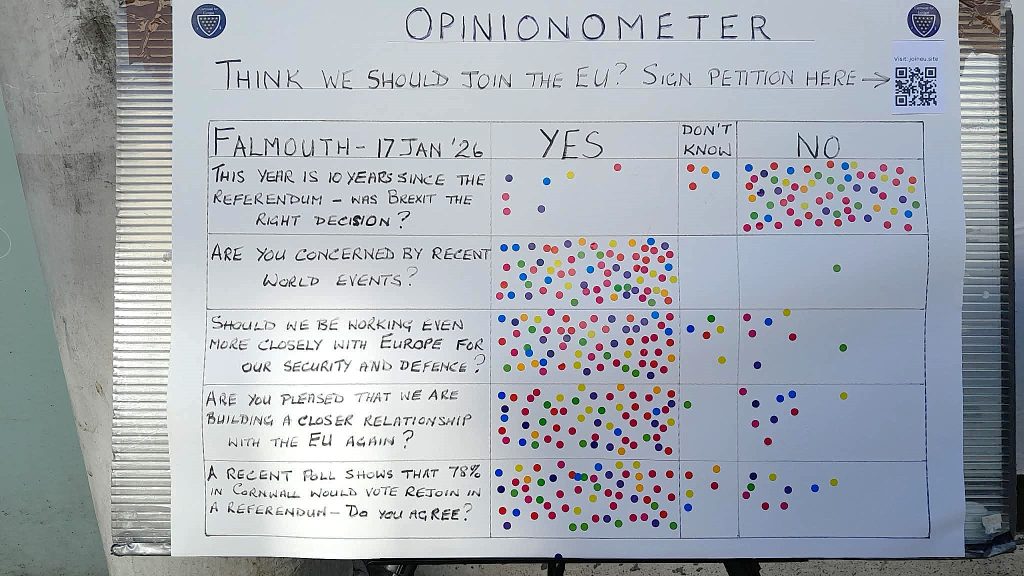 OPINIONOMETER
THINK WE SHOULD JOIN THE EU? SIGN PETITION HERE →
Visit: joineu.site
FALMOUTH - 17 JAN '26
YES
DON'T
KNOW
NO
THIS YEAR IS 10 YEARS SINCE THE
REFERENDUM - WAS BREXIT THE
RIGHT DECISION?
ARE YOU CONCERNED BY RECENT
WORLD EVENTS?
SHOULD WE BE WORKING EVEN
MORE CLOSELY WITH EUROPE FOR
OUR SECURITY AND DEFENCE?
ARE YOU PLEASED THAT WE ARE
BUILDING A CLOSER RELATIONSHIP
WITH THE EU AGAIN?
A RECENT POLL SHOWS THAT 78%
IN CORNWALL WOULD VOTE REJOIN IN
A REFERENDUM - DO YOU AGREE?